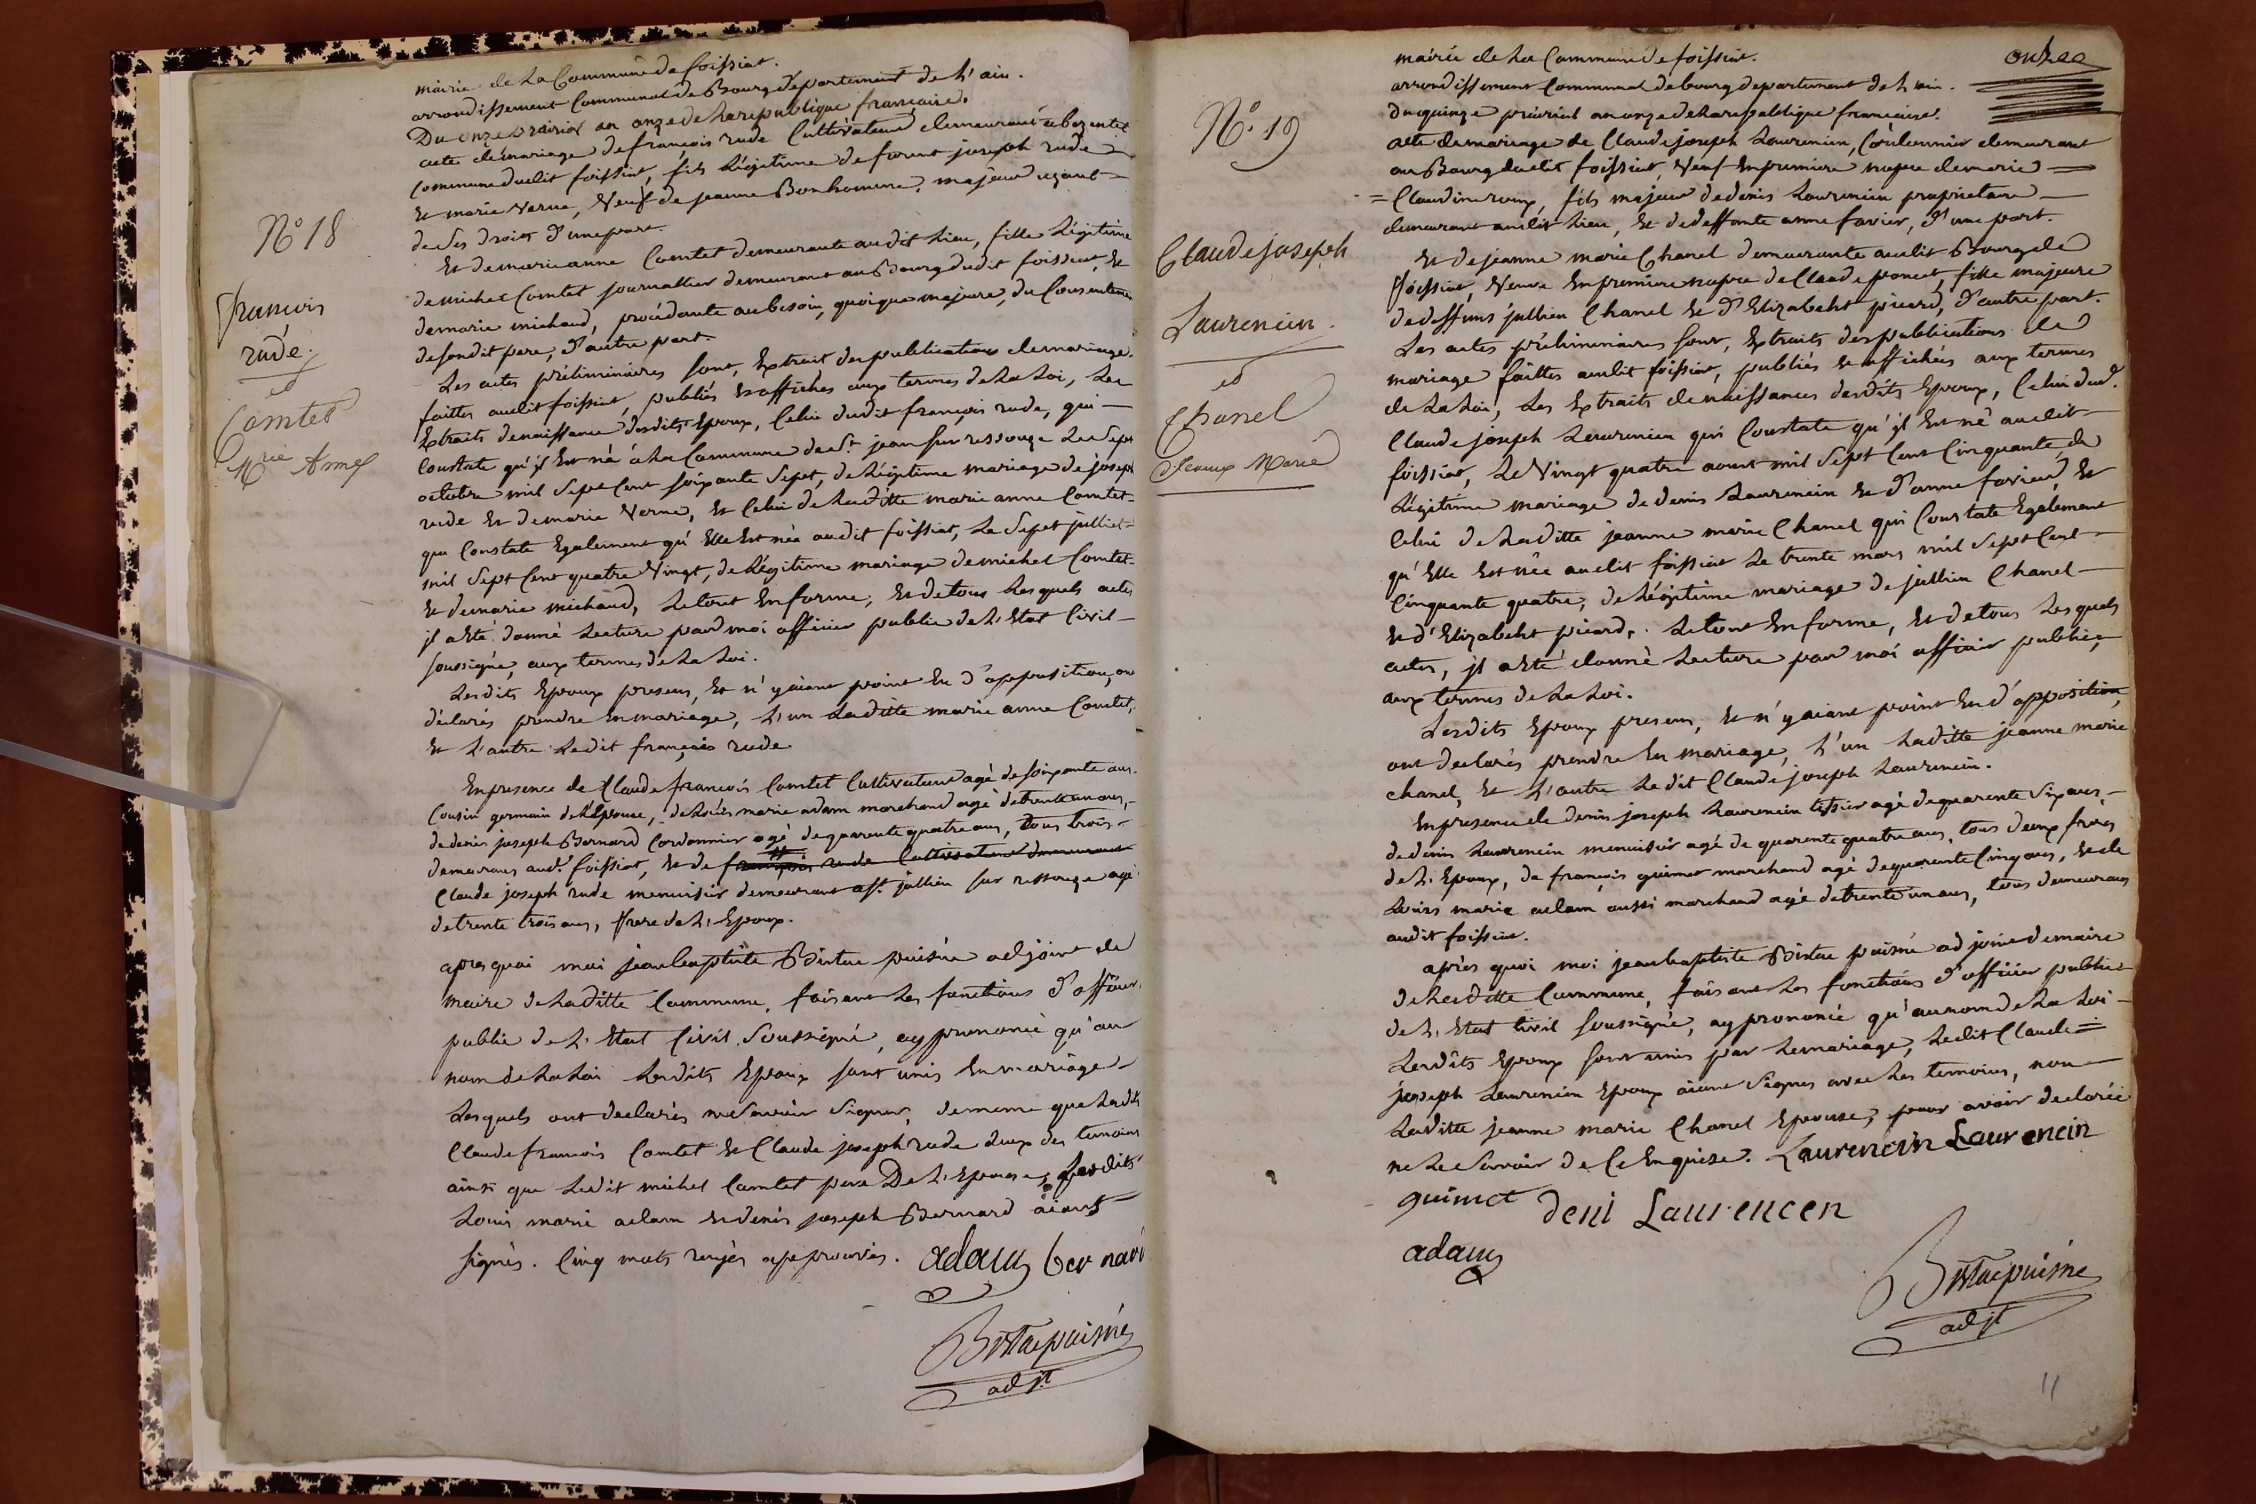 mairie de La Commune de foissiat.
arrondissement Communal de Bourg département de L'ain.
Du onze prairial an onze de La republique francaise.
acte de mariage de françois rude Cultivateur demeurant
Commune dudit foissiat, fils Légitime de joseph rude
et marie Verne, Veuf de jeanne Bonhomme, majeur usant
de ses droits d'unepart.
N° 18
françois
rude.
et
Comtet
Mrie Anne
Et de marie anne Comtet demeurante audit Lieu, fille Légitime
de michel Comtet journallier demeurant au Bourg dudit foissiat, et
de marie michaud, procédante au besoin, quoique majeure, du Consentement
de sondit pere, d'autre part.
Les actes préliminaires sont, Extrait des publications de mariage
faittes audit foissiat, publiés et affichés aux termes de La Loi, Les
Extraits de naissance desdits Epoux, Celui dudit françois rude, qui
Constate qu'il Est né à La Commune de St. jean sur ressouze Le Sept
octobre mil Sept Cent soixante Sept, de Légitime mariage de joseph
rude Et de marie Verne, et Celui de Laditte marie anne Comtet
qui Constate Egalement qu'Elle Est née audit foissiat, Le Sept julliet
mil Sept Cent quatre Vingt, de Légitime mariage de michel Comtet
Et de marie michaud, Le tout En forme, Et de tous Les quels actes
il a Eté donné Lecture par moi officier public de L'Etat Civil
soussigné, aux termes de La Loi.
Lesdits Epoux presens, Et n'y aiant point Eu d'opposition, ont
déclarés prendre En mariage, L'un Laditte marie anne Comtet,
Et L'autre Ledit françois rude
En presence de Claude françois Comtet Cultivateur agé de soixante ans
Cousin germain de L'Epouse, de Louis marie adam marchand agé de trente un ans,
de denis joseph Bernard Cordonnier agé de quarente quatre ans, tous trois
demeurans audt. foissiat, et de françois rude Cultivateur demeurant
Claude joseph rude menuisier demeurant à St. jullien sur ressouze agé
de trente trois ans, frere de L'Epoux.
apres quoi moi jean baptiste Bintue puisné adjoint de
maire de Laditte Commune, faisant Les fonctions d'officier
public de L'Etat Civil Soussigné, ay prononcé qu'au
nom de La Loi Lesdits Epoux sont unis En mariage
Lesquels ont declarés ne Savoir Signer, de meme que Ledit
Claude francois Comtet Et Claude joseph rude deux des temoins
ainsi que Ledit michel Comtet pere De L'Epouse, Lesdits
Louis marie adam Et denis joseph Bernard aiant
signés. Cinq mots rayés approuvés. adam bernard
puisné
adjt
mairie de La Commune de foissiat.
onze
arrondissement Communal de bourg departement de L'ain.
du quinze prairial an onze de La republique francaise.
acte de mariage de Claude joseph Laurencin, demeurant
au Bourg dudit foissiat, Veuf En premiere nopce de marie
= Claudine roux, fils majeur de denis Laurencin proprietaire
demeurant audit Lieu, Et de deffunte anne favier, d'une part.
N°. 19
Claude joseph
Laurencin.
et
Chanel
Jeanne Marie
Et de jeanne marie Chanel demeurante audit Bourg de
foissiat, Veuve En premiere nopce de Claude poncet, fille majeure
de deffunt jullien Chanel Et d'Elizabeht picard, d'autre part.
Les actes préliminaires sont, Extraits des publications de
mariage faittes audit foissiat, publiés et affichés aux termes
de La Loi, Les Extraits de naissances desdits Epoux, Celui dud.
Claude joseph Laurencin qui Constate qu'il Est né audit
foissiat, Le Vingt quatre aoust mil Sept Cent Cinquante, de
Légitime mariage de denis Laurencin Et d'anne favier, Et
Celui de Laditte jeanne marie Chanel qui Constate Egalement
qu'Elle Est née audit foissiat Le trente mars mil Sept Cent
Cinquante quatre, de Légitime mariage de jullien Chanel
Et d'Elizabeht picard, Le tout En forme, Et de tous Les quels
actes, il a Eté donné Lecture par moi officier public,
aux termes de La Loi.
Lesdits Epoux presens, Et n'y aiant point Eu d'opposition,
ont declarés prendre En mariage, L'un Laditte jeanne marie
chanel, Et L'autre Ledit Claude joseph Laurencin.
En presence de denis joseph Laurencin tissier agé de quarente Six ans,
de denis Laurencin menuisier agé de quarente quatre ans, tous deux freres
de L'Epoux, de françois guimet marchand agé de quarente Cinq ans, et de
Louis marie adam aussi marchand agé de trente un ans, tous demeurans
audit foissiat.
après quoi moi jean baptiste Bintue puisné adjoint de maire
de Laditte Commune, faisant Les fonctions d'officier public
de L'Etat Civil soussigné, ay prononcé qu'au nom de La Loi
Lesdits Epoux sont unis par Le mariage, Ledit Claude =
joseph Laurencin Epoux aiant Signés avec Les temoins, non
Laditte jeanne marie Chanel Epouse, pour avoir declarée
ne Le Savoir de Ce Enquise. Laurencin Laurencin
guimet deni Laurencen
adam
puisné
adjt
11